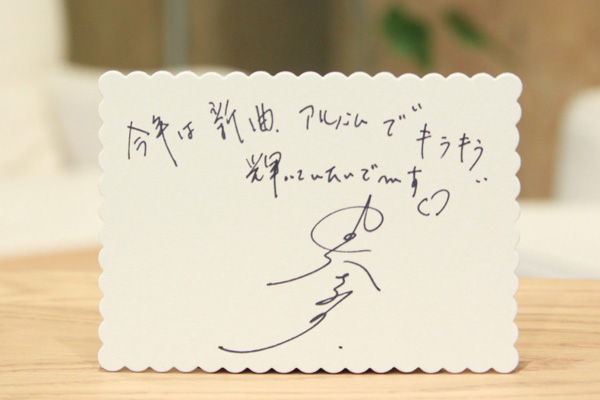 今年は新曲、アルバムで キラキラ
輝いていたいで〜す♡